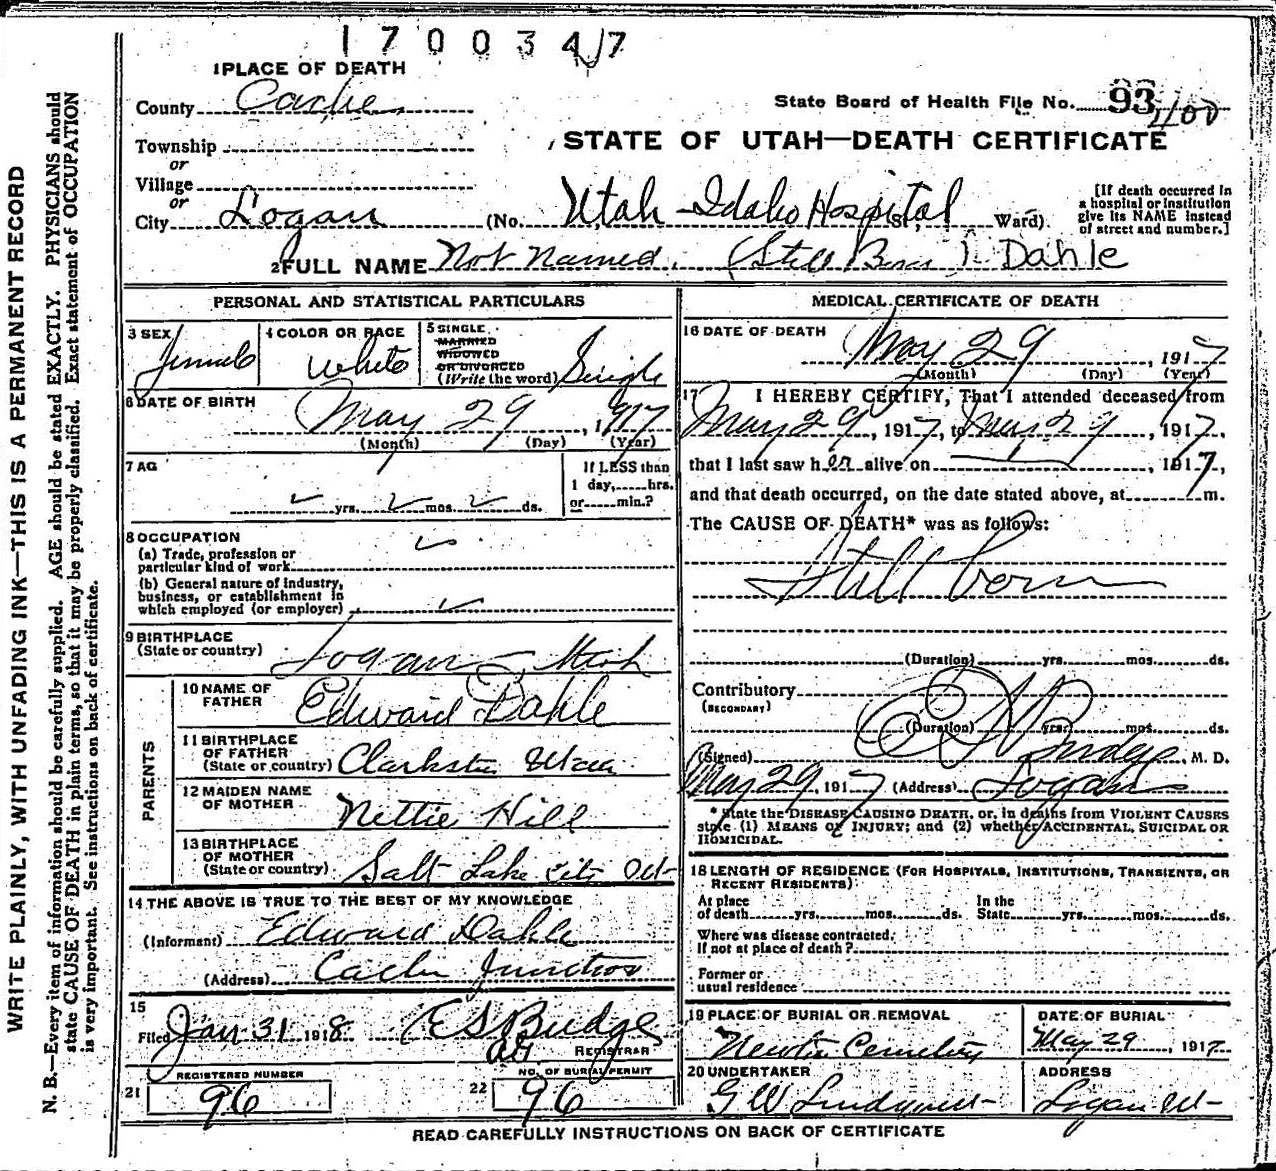 1700347
1 PLACE OF DEATH
County Cache
State Board of Health File No. 93 400
Township
STATE OF UTAH—DEATH CERTIFICATE
or
Village
or
City Logan (No. Utah-Idaho Hospital St., Ward)
[If death occurred in a hospital or institution give its NAME instead of street and number.]
2 FULL NAME Not Named (Still Born) Dahle
PERSONAL AND STATISTICAL PARTICULARS
3 SEX Female
4 COLOR OR RACE White
5 SINGLE MARRIED WIDOWED OR DIVORCED (Write the word) Single
6 DATE OF BIRTH May 29, 1917
(Month) (Day) (Year)
7 AG
yrs. mos. ds.
If LESS than 1 day, hrs. or min.?
8 OCCUPATION
(a) Trade, profession or particular kind of work
(b) General nature of industry, business, or establishment in which employed (or employer)
9 BIRTHPLACE (State or country) Logan Utah
PARENTS
10 NAME OF FATHER Edward Dahle
11 BIRTHPLACE OF FATHER (State or country) Clarkston Utah
12 MAIDEN NAME OF MOTHER Nettie Hill
13 BIRTHPLACE OF MOTHER (State or country) Salt Lake City Ut-
14 THE ABOVE IS TRUE TO THE BEST OF MY KNOWLEDGE
(Informant) Edward Dahle
(Address) Cache Junction
15 Filed Jan 31 1918 E S Budge
REGISTRAR
21 REGISTERED NUMBER 96
22 NO. OF BURIAL PERMIT 96
MEDICAL CERTIFICATE OF DEATH
16 DATE OF DEATH May 29, 1917
(Month) (Day) (Year)
17 I HEREBY CERTIFY, That I attended deceased from
May 29, 1917, to May 29, 1917,
that I last saw her alive on , 1917,
and that death occurred, on the date stated above, at m.
The CAUSE OF DEATH* was as follows:
Still born
(Duration) yrs. mos. ds.
Contributory (SECONDARY)
(Duration) yrs. mos. ds.
(Signed) Budge, M. D.
May 29, 1917 (Address) Logan
* State the DISEASE CAUSING DEATH, or, in deaths from VIOLENT CAUSES
state (1) MEANS OF INJURY; and (2) whether ACCIDENTAL, SUICIDAL OR
HOMICIDAL.
18 LENGTH OF RESIDENCE (FOR HOSPITALS, INSTITUTIONS, TRANSIENTS, OR
RECENT RESIDENTS)
At place of death yrs. mos. ds. In the State yrs. mos. ds.
Where was disease contracted,
If not at place of death?
Former or
usual residence
19 PLACE OF BURIAL OR REMOVAL Newton Cemetery
DATE OF BURIAL May 29, 1917
20 UNDERTAKER G W Lindquist
ADDRESS Logan Ut-
READ CAREFULLY INSTRUCTIONS ON BACK OF CERTIFICATE
WRITE PLAINLY, WITH UNFADING INK—THIS IS A PERMANENT RECORD
N. B.—Every item of information should be carefully supplied. AGE should be stated EXACTLY. PHYSICIANS should
state CAUSE OF DEATH in plain terms, so that it may be properly classified. Exact statement of OCCUPATION
is very important. See instructions on back of certificate.